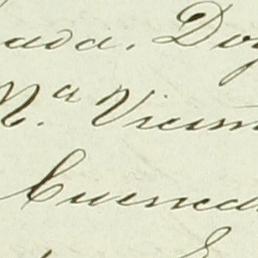 ada. Do
Mª Vicen
Cuenca